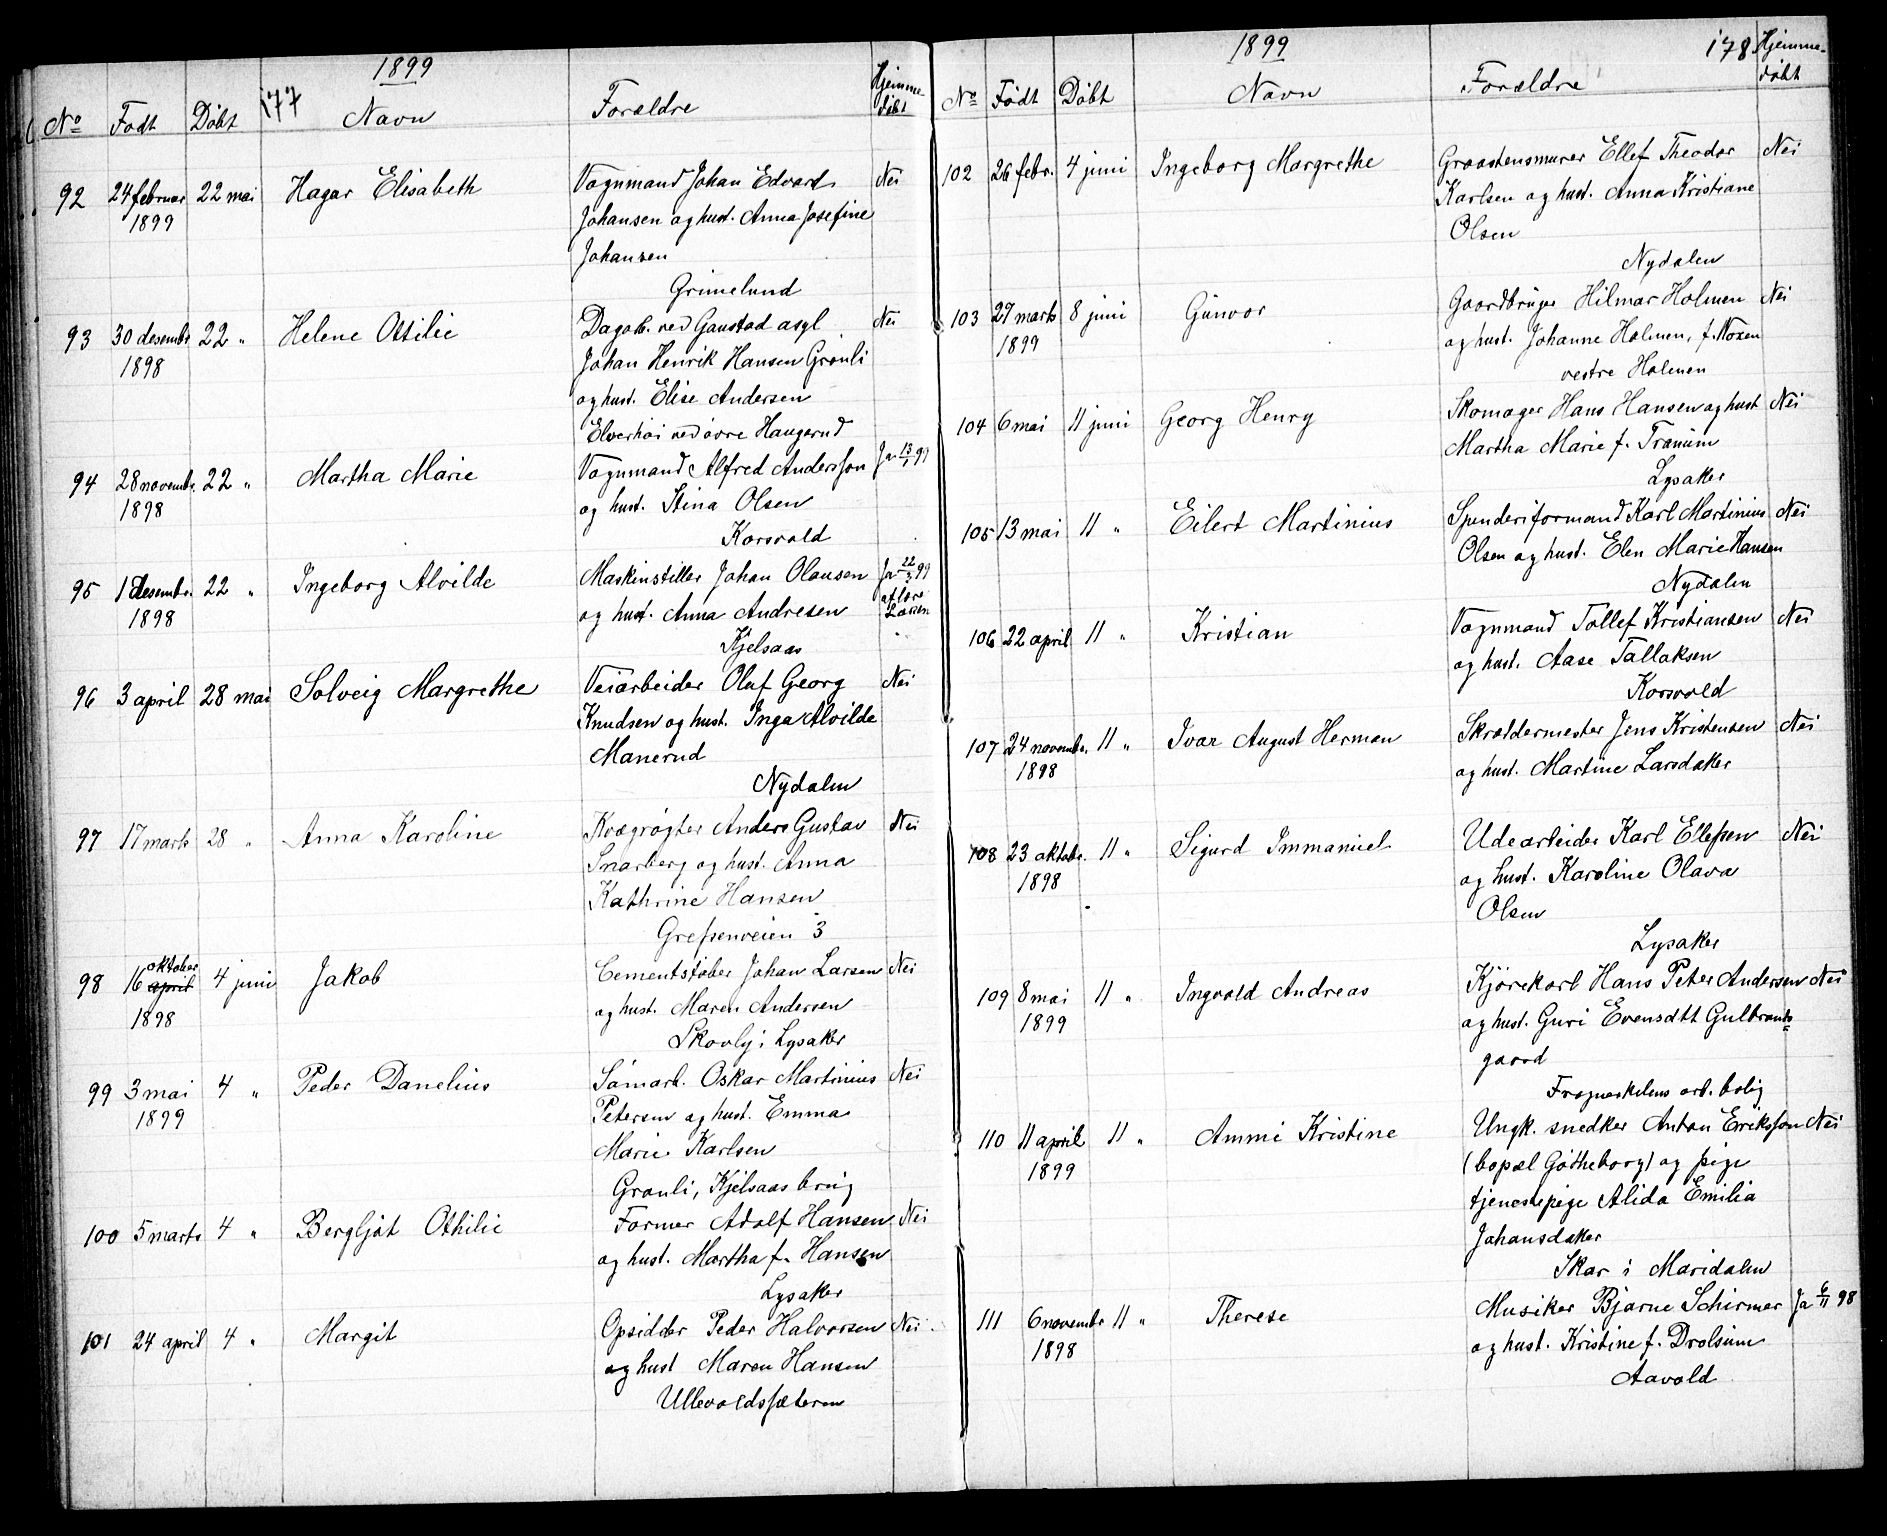 1899
177
Nº Født Døbt Navn Forældre Hjemmedøbt
92 24 februar 1899 22 mai Hagar Elisabeth Vognmand Johan Edvard Nei
Johansen og hust. Anna Josefine
Johansen
Grimelund
93 30 desembr. 1898 22 " Helene Otilie Dagarb. ved Gaustad asyl Nei
Johan Henrik Hansen Grønli
og hust. Elise Andersen
Elverhøi ved øvre Haugerud
94 28 novembr. 1898 22 " Martha Marie Vognmand Alfred Andersson Ja 13/1 99
og hust. Stina Olsen
Korsvold
95 1 desembr. 1898 22 " Ingeborg Alvilde Maskinstiller Johan Olausen Ja 22/3 99
og hust. Anna Andresen
Kjelsaas
96 3 april 28 mai Solveig Margrethe Veiarbeider Oluf Georg Nei
Knudsen og hust. Inga Alvilde
Manerud
Nydalen
97 17 marts 28 " Anna Karoline Kvægrøgter Anders Gustav Nei
Snarberg og hust. Anna
Kathrine Hansen
Grefsenveien 3
98 16 april oktober 1898 4 juni Jakob Cementstøber Johan Larsen Nei
og hust. Maren Andersen
Skovly i Lysaker
99 3 mai 1899 4 " Peder Danelius Sømarb. Oskar Martinius Nei
Petersen og hust. Emma
Marie Karlsen
Grønli, Kjelsaas brug
100 5 marts 4 " Bergljot Othilie Former Adolf Hansen Nei
og hust. Martha f. Hansen
Lysaker
101 24 april 4 " Margit Opsidder Peder Halvorsen Nei
og hust Maren Hansen
Ullevoldssæteren
1899
178
Nº Født Døbt Navn Forældre Hjemmedøbt
102 26 febr. 4 juni Ingeborg Margrethe Graastensmurer Ellef Theodor Nei
Karlsen og hust. Anna Kristiane
Olsen
Nydalen
103 27 marts 1899 8 juni Gunvor Gaardbruger Hilmar Holmen Nei
og hust. Johanne Holmen, f. Noxen
vestre Holmen
104 6 mai 11 juni Georg Henry Skomager Hans Hansen og hust Nei
Martha Marie f. Tranum
Lysaker
105 13 mai 11 " Eilert Martinius Spinderiformand Karl Martinius Nei
Olsen og hust. Elen Marie Hansen
Nydalen
106 22 april 11 " Kristian Vognmand Tollef Kristiansen Nei
og hust. Aase Tallaksen
Korsvold
107 24 novembr. 1898 11 " Ivar August Herman Skræddermester Jens Kristensen Nei
og hust. Martine Larsdaker
108 23 oktobr. 1898 11 " Sigurd Immanuel Udearbeider Karl Ellefsen Nei
og hust. Karoline Olava
Olsen
Lysaker
109 8 mai 1899 11 " Ingvald Andreas Kjørekarl Hans Peter Andersen Nei
og hust. Guri Evensdtt Gulbrands=
gaard
Frognerkilens arb. bolig
110 11 april 1899 11 " Ammi Kristine Ungk. snedker Anton Eriksson Nei
(bopæl Gøtheborg) og pige
tjenestepige Alida Emilia
Johansdaker
Skar i Maridalen
111 6 novembr 1898 11 " Therese Musiker Bjarne Schirmer Ja 6/11 98
og hust. Kristine f. Drolsum
Aavold